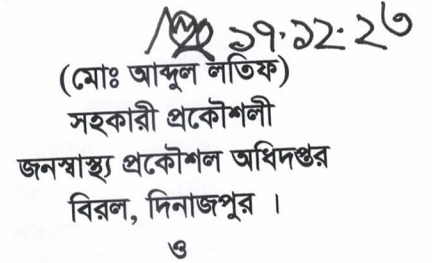 ১৭.১২.২৩
(মোঃ আব্দুল লতিফ)
সহকারী প্রকৌশলী
জনস্বাস্থ্য প্রকৌশল অধিদপ্তর
বিরল, দিনাজপুর ।
ও